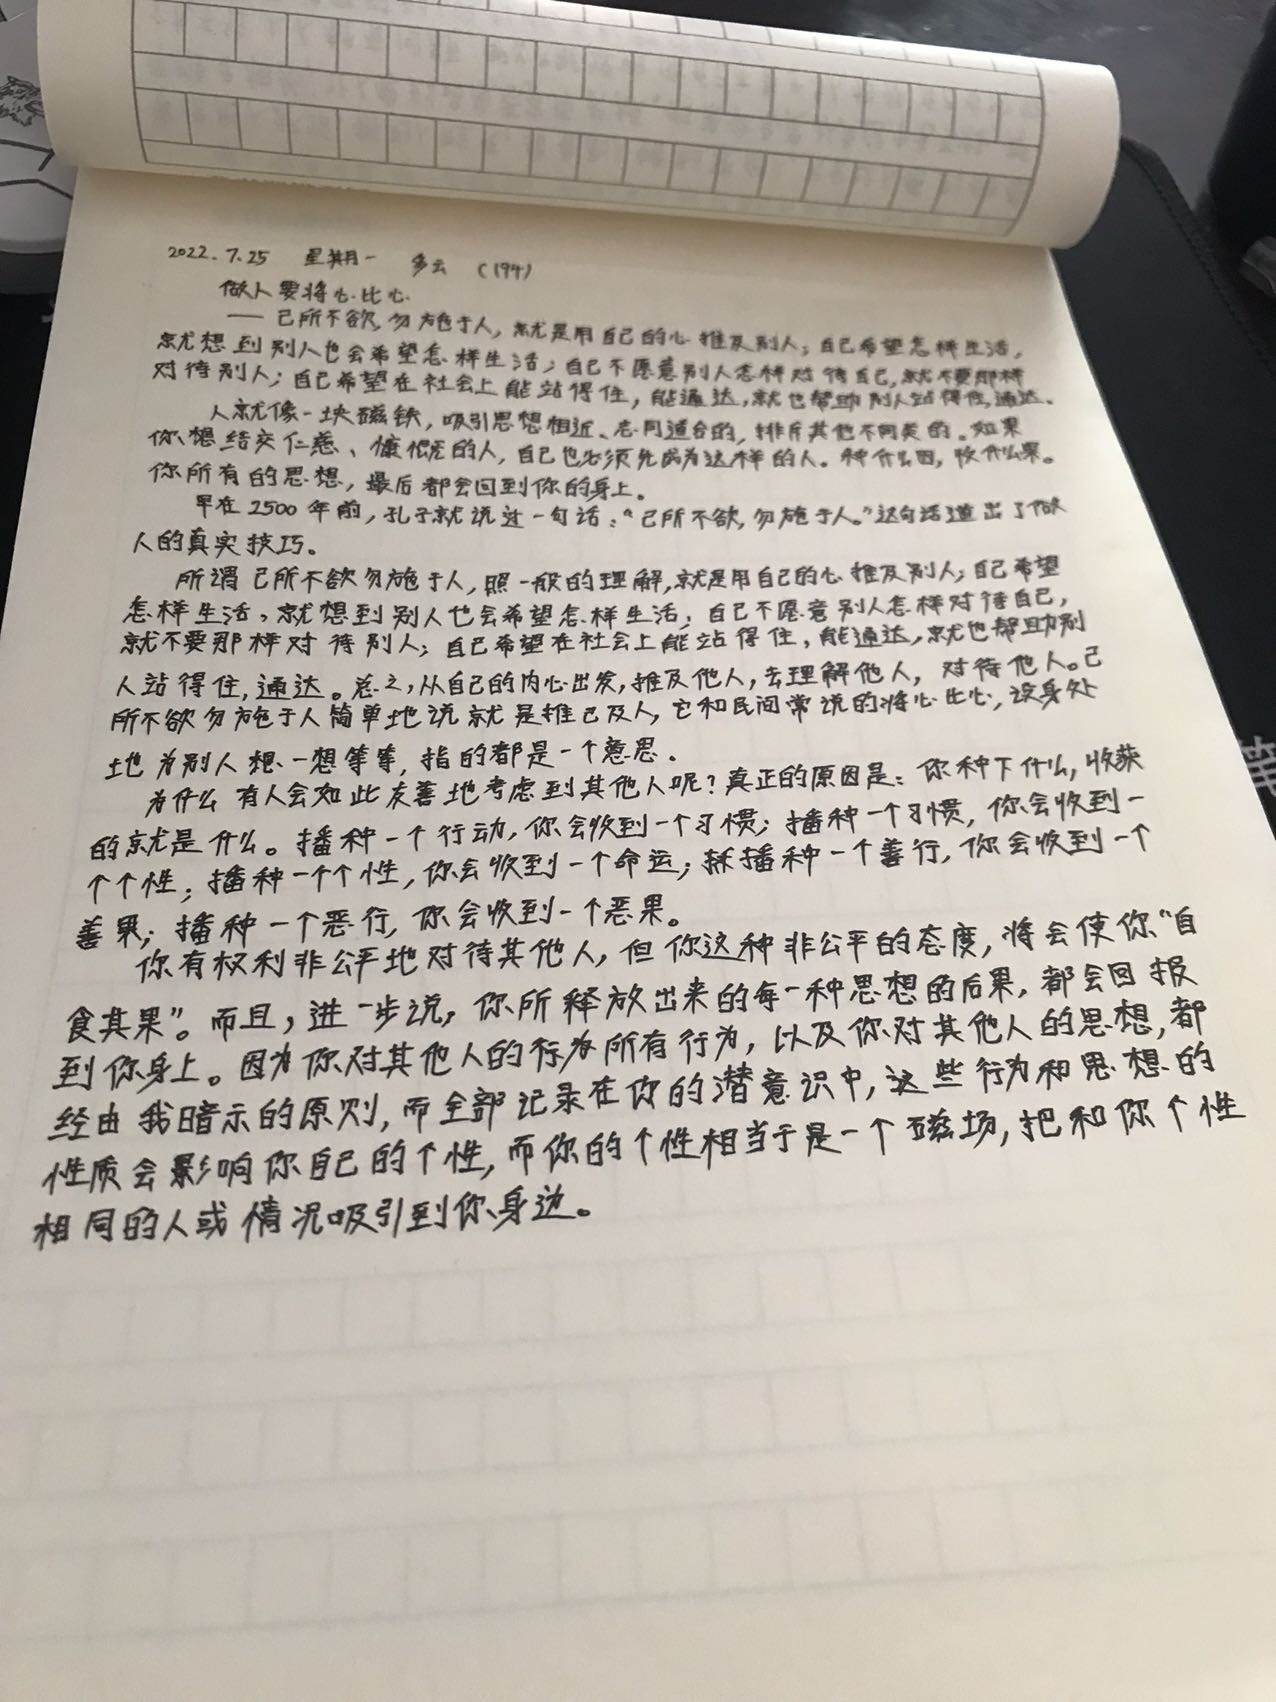 2022.7.25 星期一 多云 (194)
做人要将心比心
——己所不欲,勿施于人,就是用自己的心推及别人;自己希望怎样生活,
就想到别人也会希望怎样生活;自己不愿意别人怎样对待自己,就不要那样
对待别人;自己希望在社会上能站得住,能通达,就也帮助别人站得住,通达。
人就像一块磁铁,吸引思想相近、志同道合的,排斥其他不同类的。如果
你想结交仁慈、慷慨的人,自己也必须先成为这样的人。种什么因,收什么果。
你所有的思想,最后都会回到你的身上。
早在2500年前,孔子就说过一句话:“己所不欲,勿施于人。”这句话道出了做
人的真实技巧。
所谓己所不欲勿施于人,照一般的理解,就是用自己的心推及别人;自己希望
怎样生活,就想到别人也会希望怎样生活;自己不愿意别人怎样对待自己,
就不要那样对待别人;自己希望在社会上能站得住,能通达,就也帮助别
人站得住,通达。总之,从自己的内心出发,推及他人,去理解他人,对待他人。己
所不欲勿施于人简单地说就是推己及人,它和民间常说的将心比心,设身处
地为别人想一想等等,指的都是一个意思。
为什么有人会如此友善地考虑到其他人呢?真正的原因是:你种下什么,收获
的就是什么。播种一个行动,你会收到一个习惯;播种一个习惯,你会收到一
个个性;播种一个个性,你会收到一个命运;播种一个善行,你会收到一个
善果;播种一个恶行,你会收到一个恶果。
你有权利非公平地对待其他人,但你这种非公平的态度,将会使你“自
食其果”。而且,进一步说,你所释放出来的每一种思想的后果,都会回报
到你身上。因为你对其他人的所有行为,以及你对其他人的思想,都
经由我暗示的原则,而全部记录在你的潜意识中,这些行为和思想的
性质会影响你自己的个性,而你的个性相当于是一个磁场,把和你个性
相同的人或情况吸引到你身边。